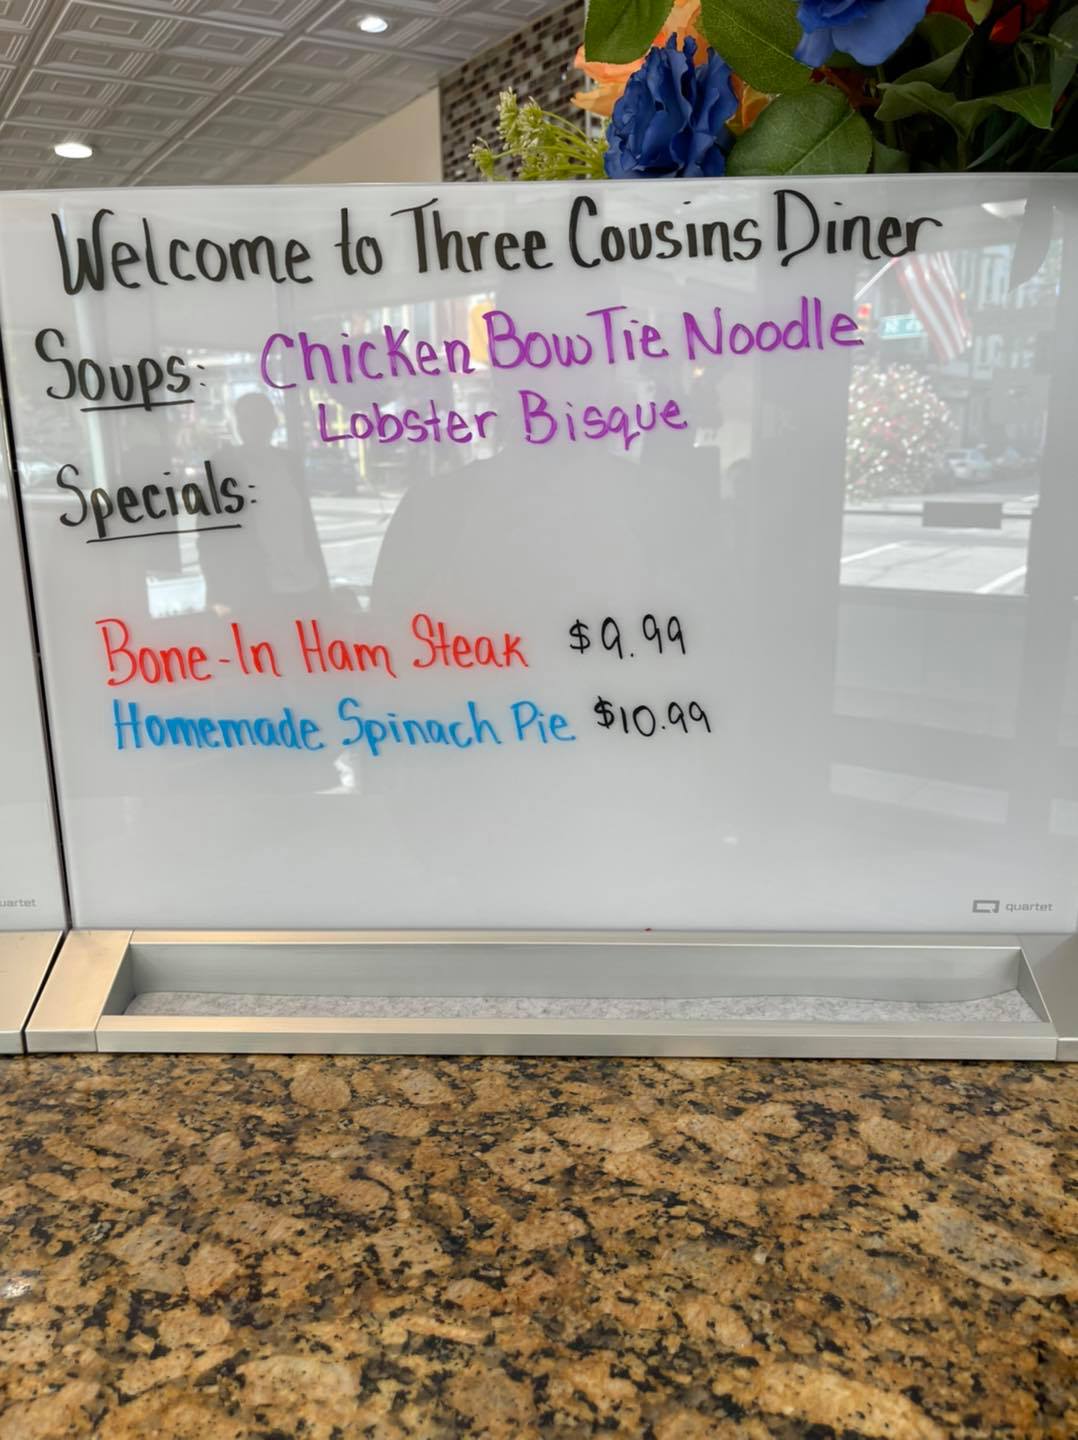 Welcome to Three Cousins Diner
Soups: Chicken Bow Tie Noodle
Lobster Bisque
Specials:
Bone-In Ham Steak $9.99
Homemade Spinach Pie $10.99
uartet
quartet